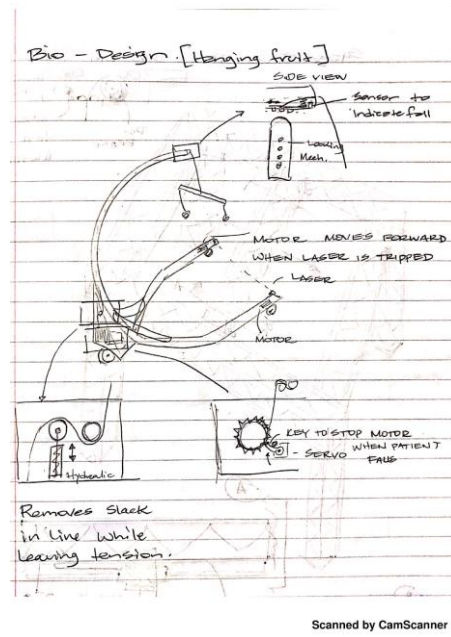 Bio - Design. [Hanging fruit]
SIDE VIEW
Sensor to
indicate fall
Locking
Mech.
MOTOR MOVES FORWARD
WHEN LASER IS TRIPPED
LASER
MOTOR
KEY TO STOP MOTOR
WHEN PATIENT
- SERVO
FALLS
Hydraulic
A
Removes Slack
in line while
leaving tension.
Scanned by CamScanner